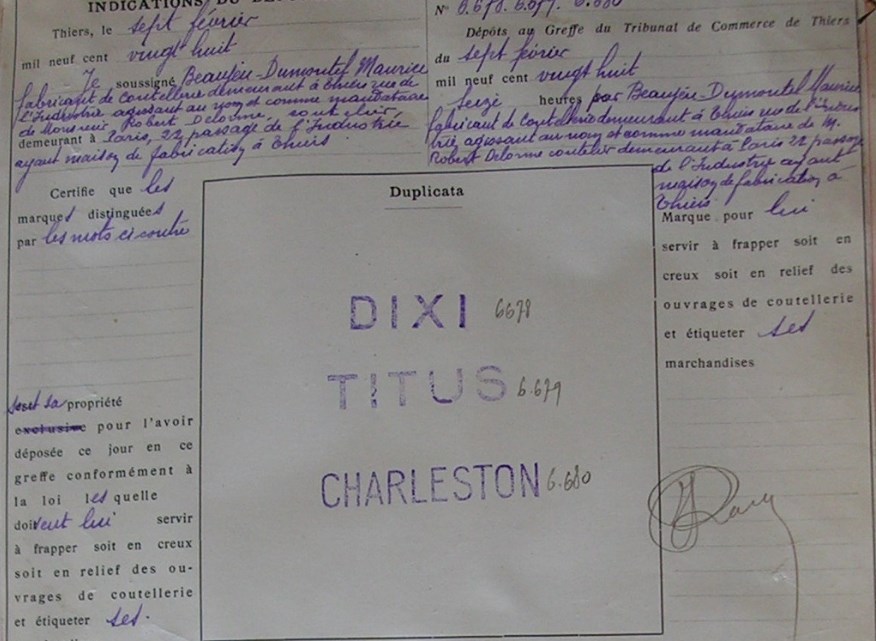 INDICATIONS DU
Thiers, le sept février
mil neuf cent vingt huit
Je soussigné Beaujeu-Dumontel Maurice
fabricant de coutellerie demeurant à Thiers rue de
l'Industrie agissant au nom et comme mandataire
de Monsieur Robert Delorme, coutelier,
demeurant à Paris, 22, passage de l'Industrie
ayant maison de fabrication à Thiers.
Certifie que les
marques distinguées
par les mots ci contre
sont sa propriété
exclusive pour l'avoir
déposée ce jour en ce
greffe conformément à
la loi lesquelle
doivent lui servir
à frapper soit en creux
soit en relief des ou-
vrages de coutellerie
et étiqueter ses.
Duplicata
DIXI 6678
TITUS 6.679
CHARLESTON 6.680
N° 6.678. 6.679. 6.680
Dépôts au Greffe du Tribunal de Commerce de Thiers
du sept février
mil neuf cent vingt huit
Seize heures par Beaujeu Dumontel Maurice
fabricant de Coutellerie demeurant à Thiers rue de l'Indus
trie agissant au nom et comme mandataire de M.
Robert Delorme coutelier demeurant à Paris 22 passage
de l'Industrie ayant
maison de fabrication à
Thiers
Marque pour lui
servir à frapper soit en
creux soit en relief des
ouvrages de coutellerie
et étiqueter ses
marchandises